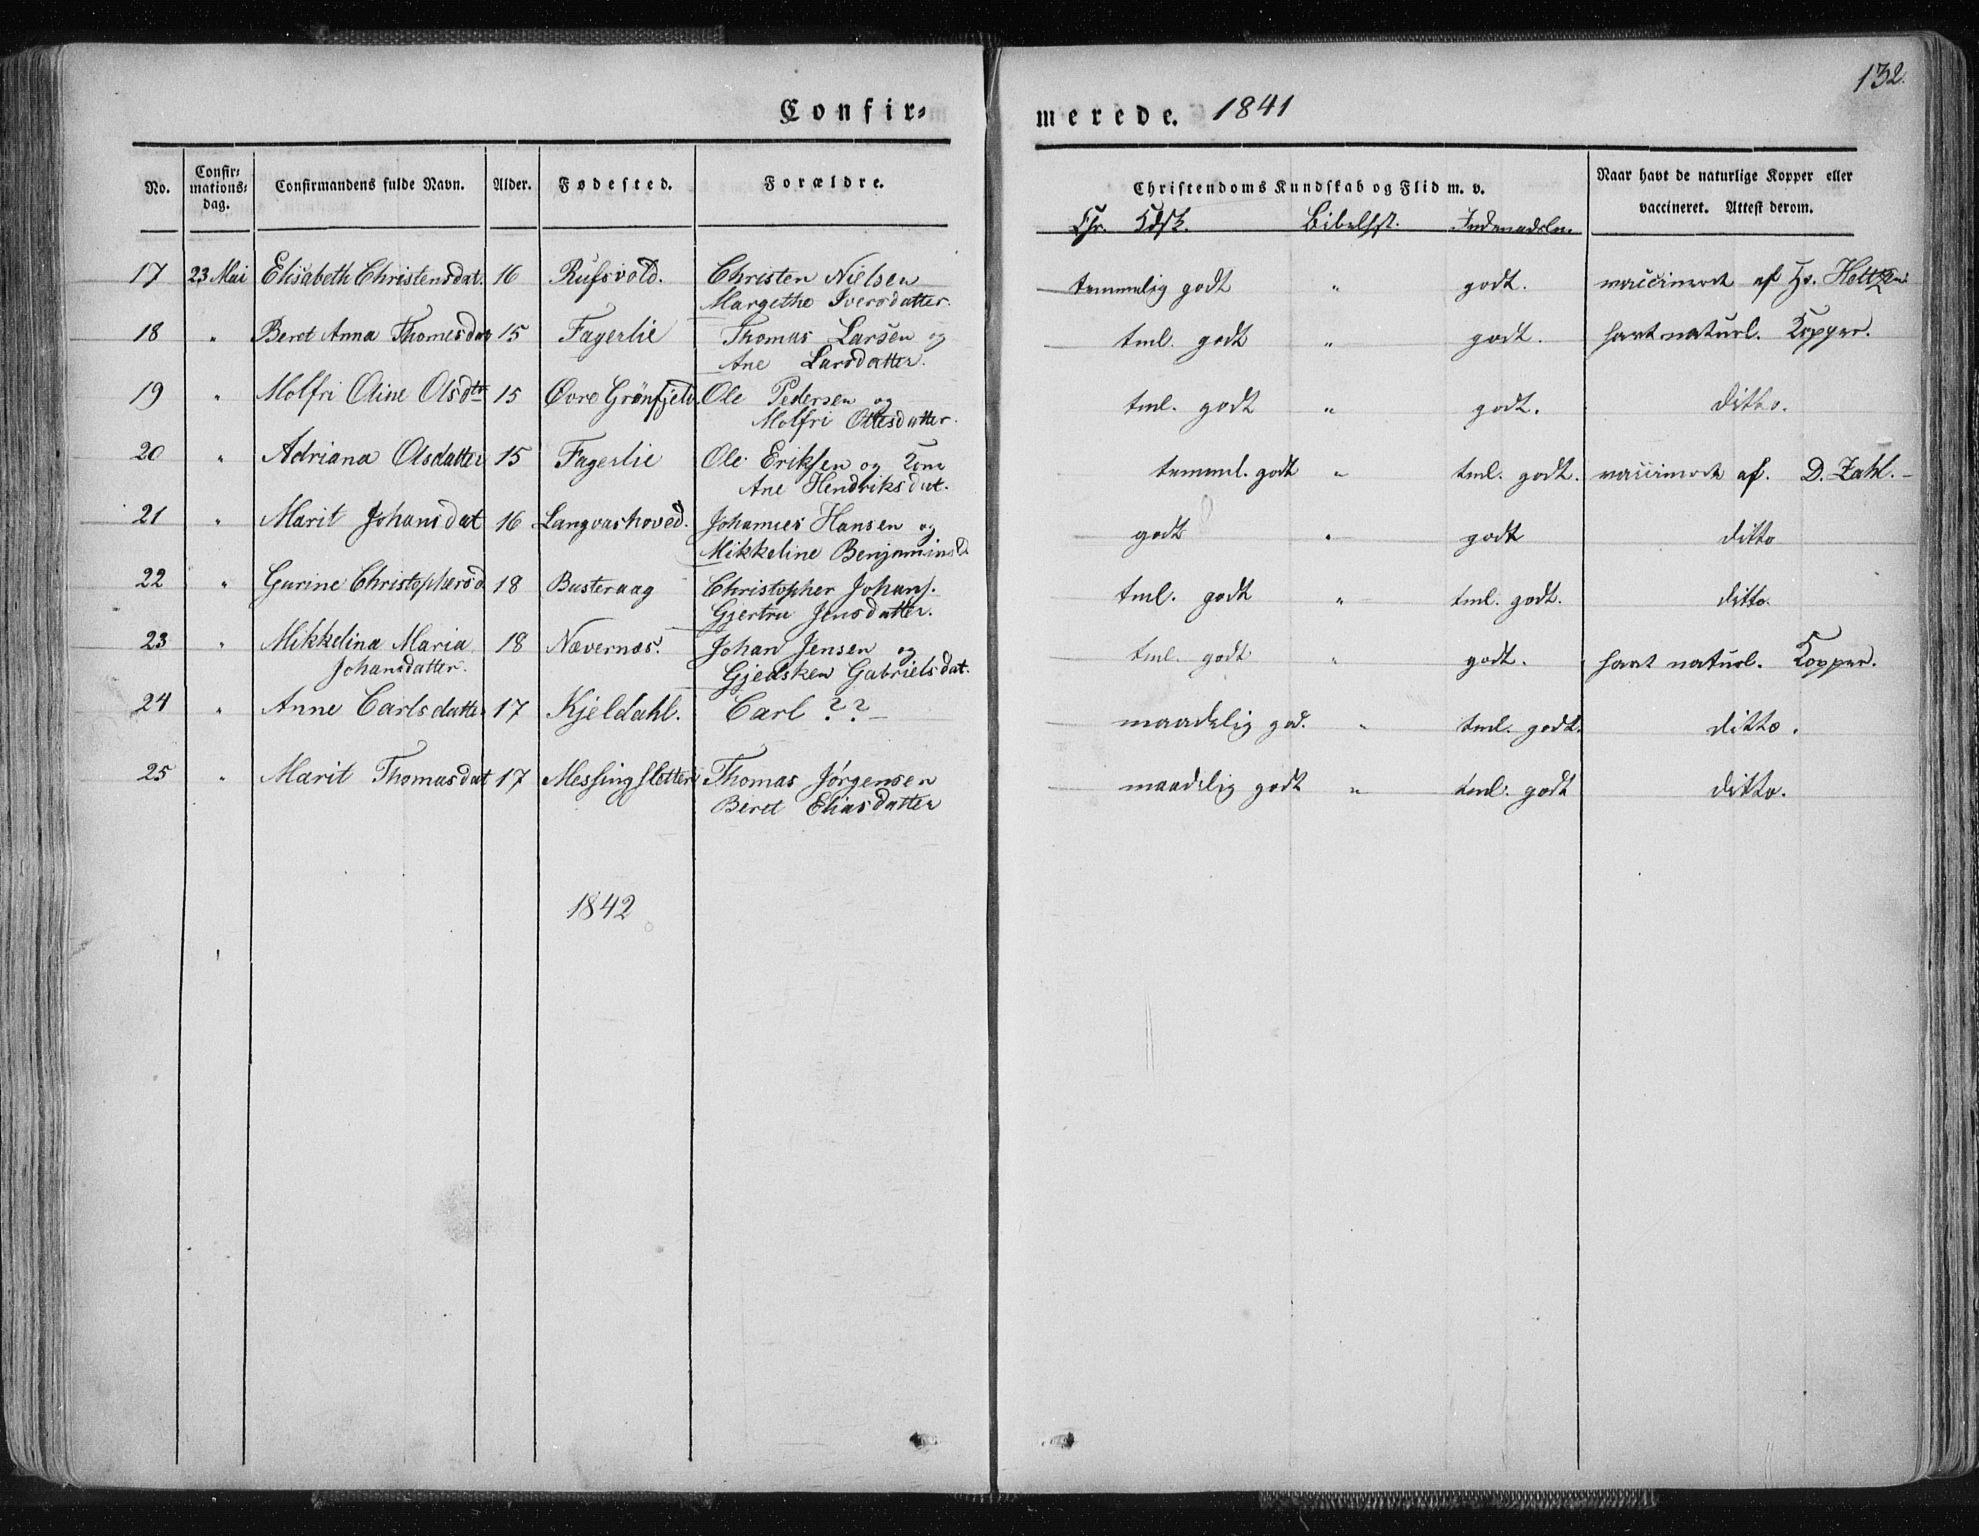 132.
Confir=
merede. 1841
No.
Confir=
mations=
dag.
Confirmandens fulde Navn.
Alder.
Fødested.
Forældre.
Christendoms Kundskab og Flid m. v.
Naar havt de naturlige Kopper eller
vaccineret. Attest derom.
Chr. Kdsk. Bibelhst.
17 23 Mai Elisabeth Christensdat. 16 Rufsvold. Christen Nielsen temmelig godt " godt. vaccineret af Hr.
Margethe Iversdatter.
18 " Beret Anna Thomesdat 15 Fagerlie Thomas Larsen og tml. godt " godt. havt naturl. Kopper.
Ane Larsdatter.
19 " Molfri Oline Olsdtr 15 Øvre Grønfjeld. Ole Pedersen og tml. godt " godt. ditto.
Molfri Ottesdatter.
20 " Adriana Olsdatter 15 Fagerlie Ole Eriksen og Kone temml. godt " tml. godt. vaccineret af D. Zahl. -
Ane Hendriksdat.
21 " Marit Johansdat 16 Langvashoved. Johannes Hansen og godt " godt ditto
Mikkeline Benjaminsd
22 " Gurine Christophersd 18 Busteraag Christopher Johans. tml. godt " tml. godt. ditto.
Gjertru Jensdatter.
23 " Mikkelina Maria 18 Nævernæs. Johan Jensen og tml. godt " godt. havt naturl. Kopper.
Johansdatter. Gjedsken Gabrielsdat.
24 " Anne Carlsdatter 17 Kjeldahl. Carl ?? - maadelig god. " tml. godt. ditto.
25 " Marit Thomasdat 17 Messingsletten Thomas Jørgensen maadelig godt " tml. godt ditto.
Beret Eliasdatter
1842